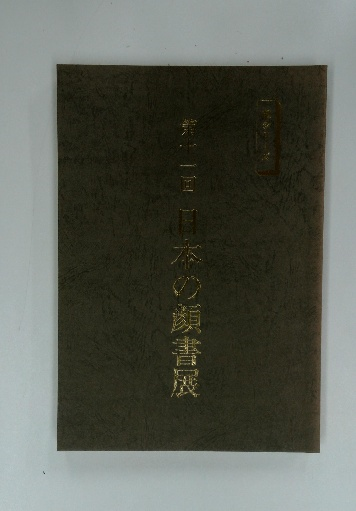 第十一回 日本の顔書展